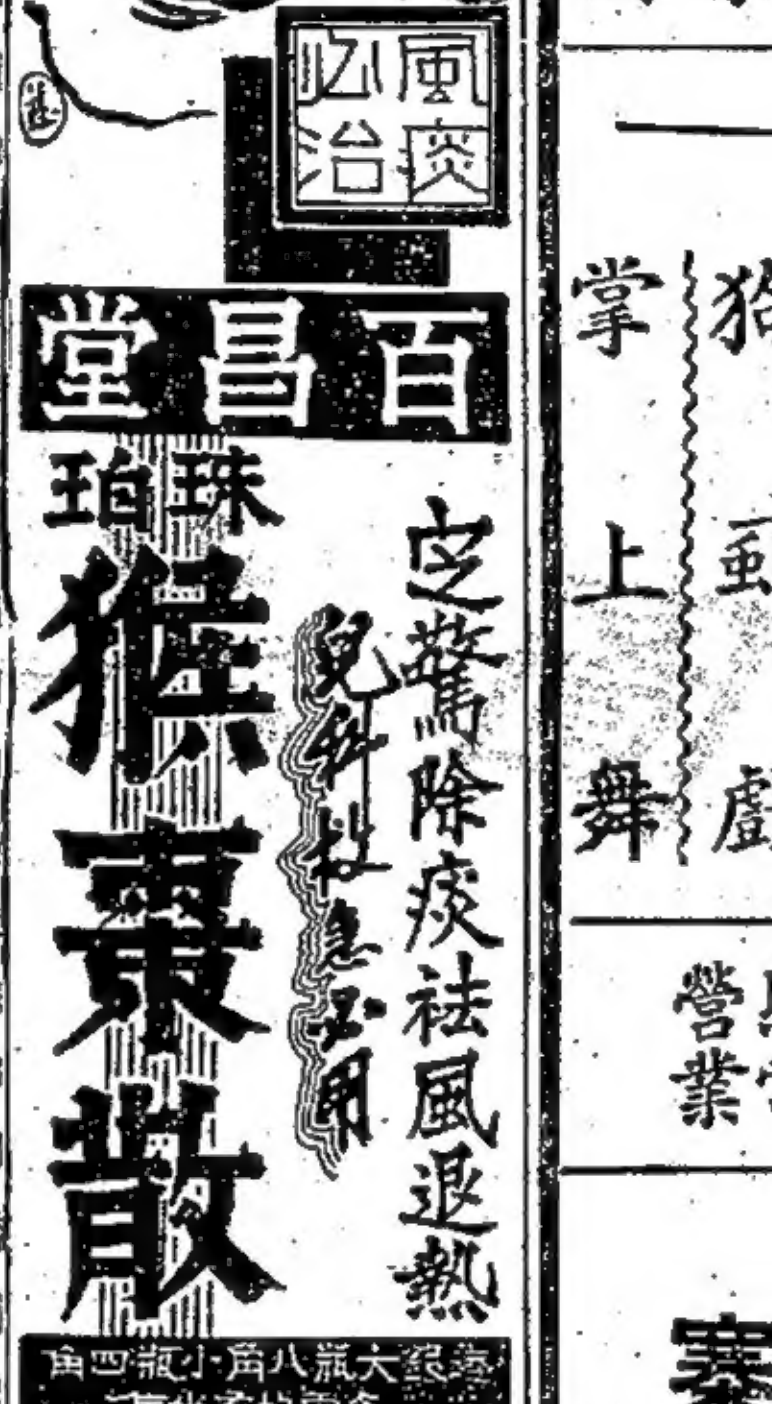 風痰
必治
百昌堂
珠珀
猴棗散
定驚除痰祛風退熱
兒科救急必用
大瓶八角小瓶四角
掌上舞
戲
營業